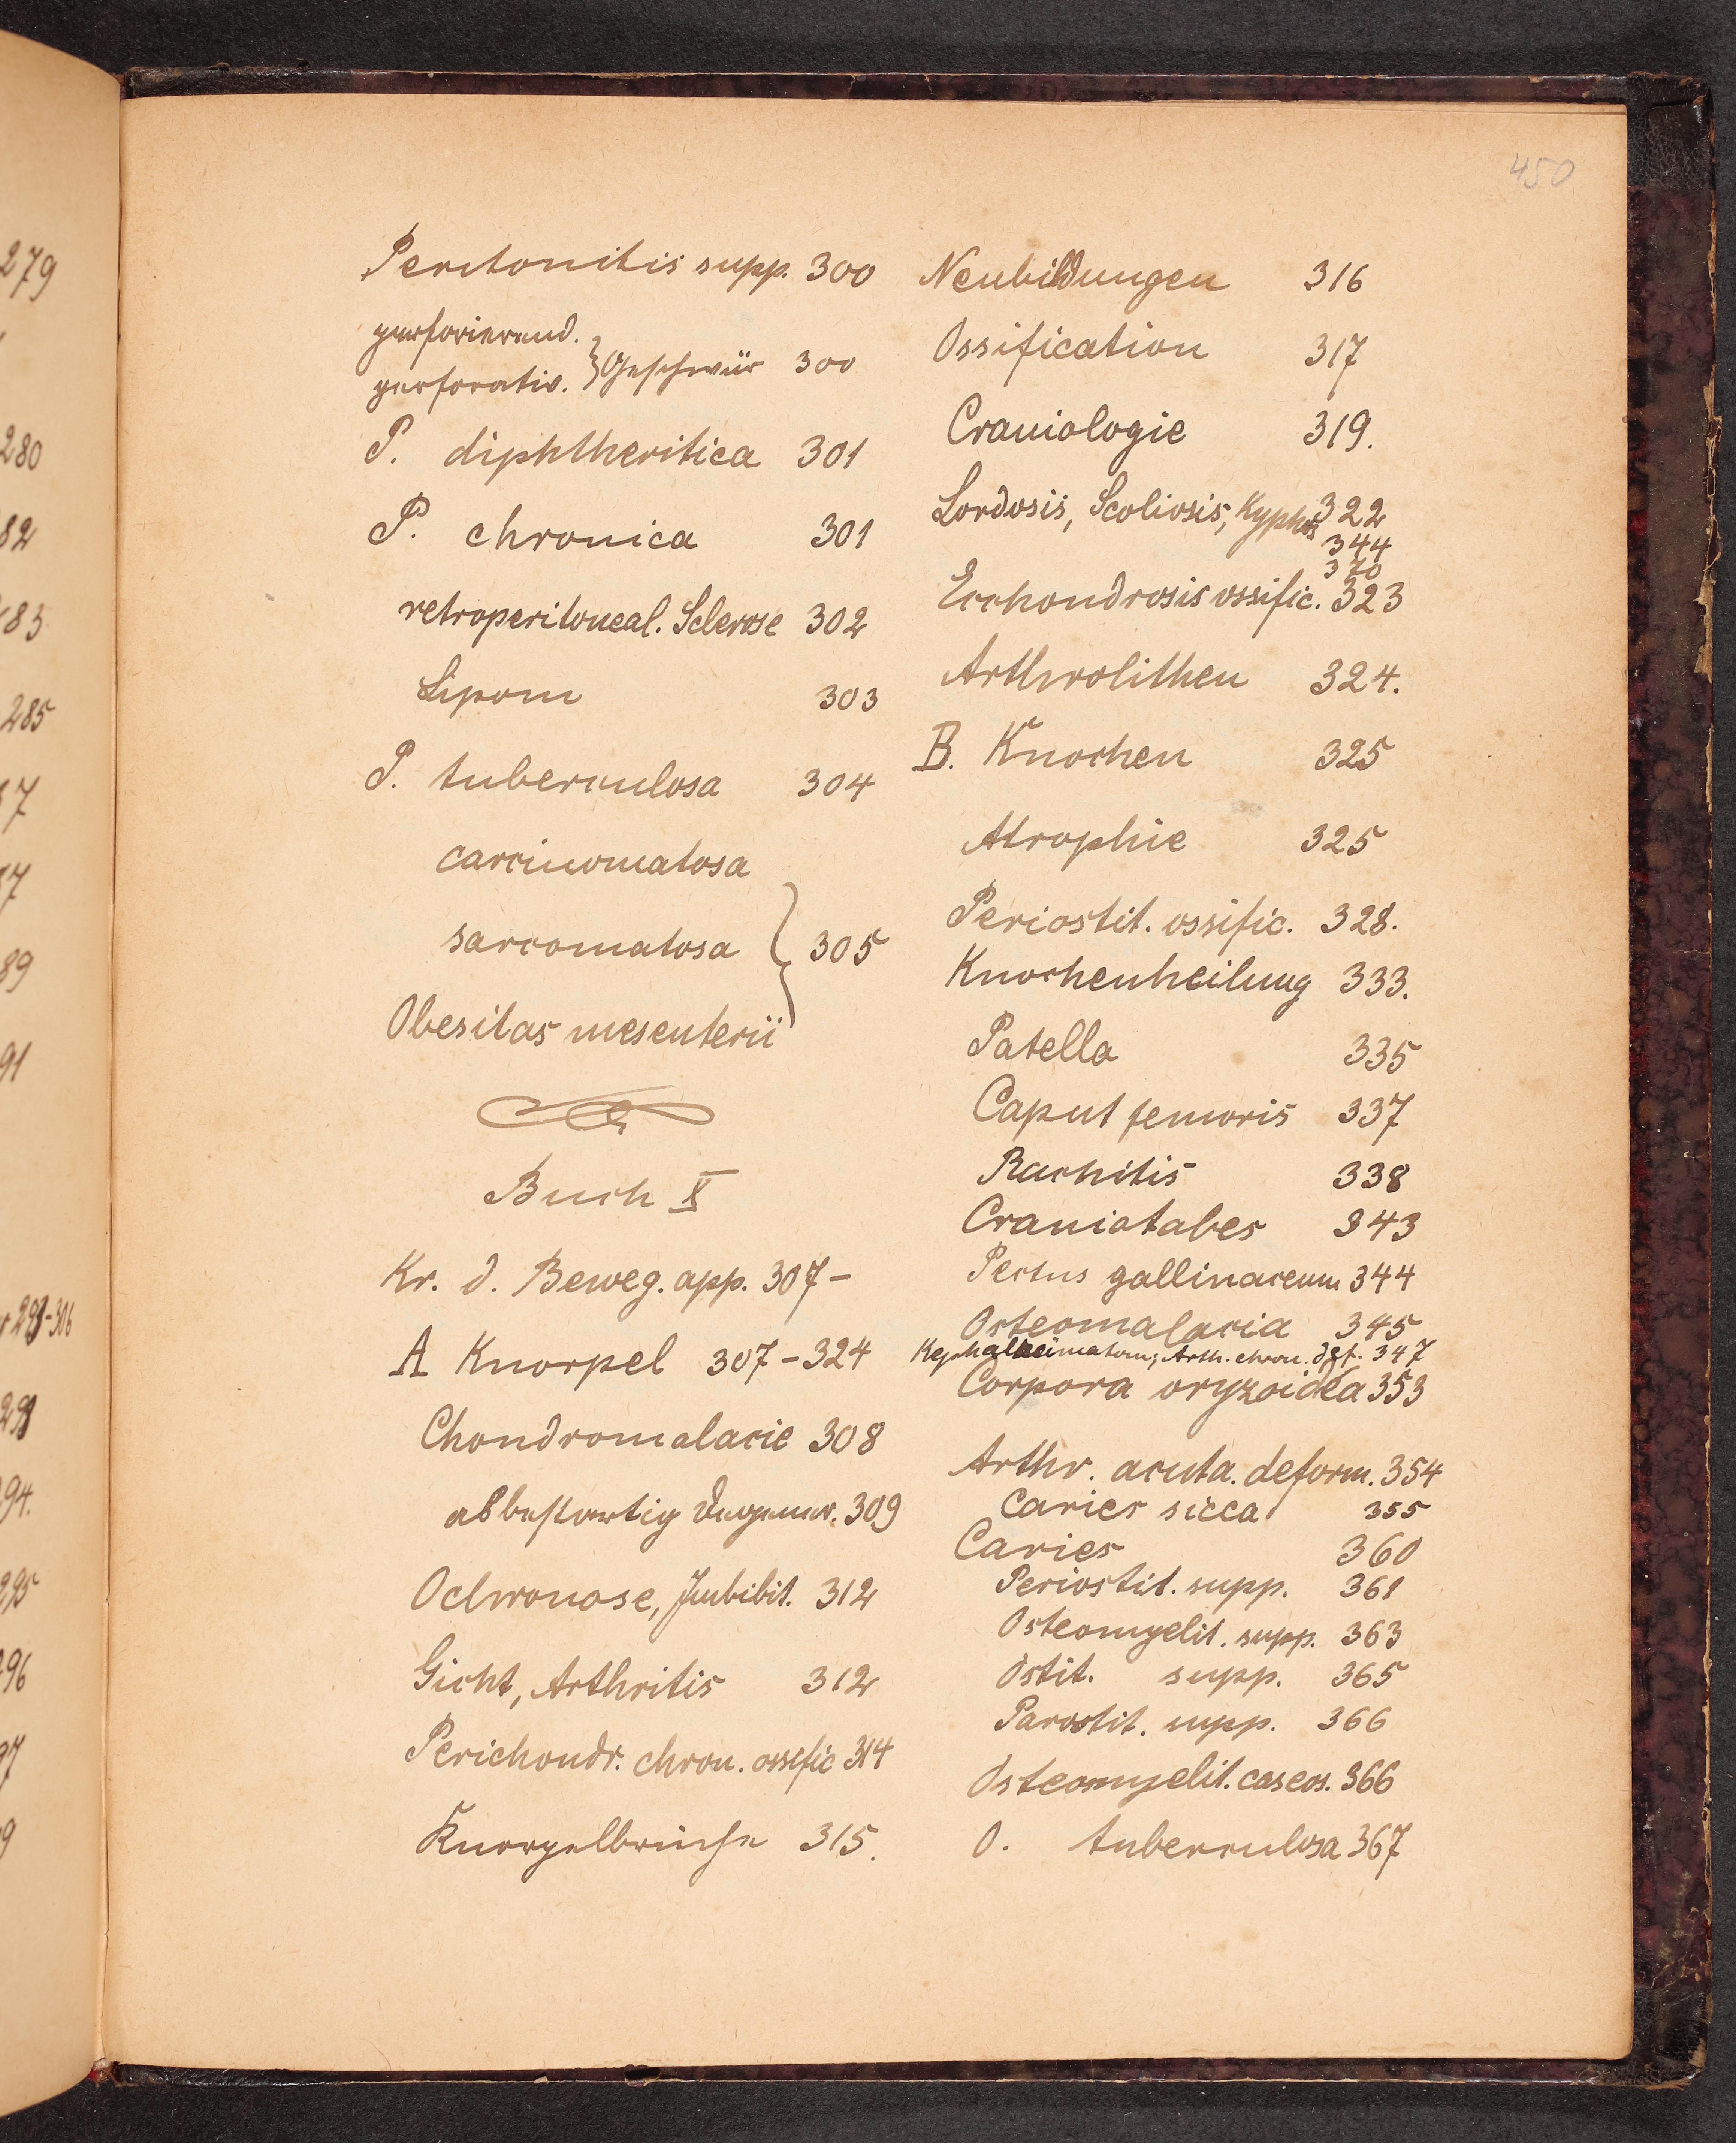 450
Peritonitis supp. 300
perforierend.
perforativ. } Geschwür 300
P. diphtheritica 301
P. chronica 301
retroperitoneal. Sclerose 302
Lipom 303
P. tuberculosa 304
carcinomatosa
sarcomatosa } 305
Obesitas mesenterii
Buch X
Kr. d. Beweg. app. 307-
A Knorpel 307-324
Chondromalacie 308
asbestartig Degener. 309
Ochronose, Imbibit. 312
Gicht, Arthritis 312
Perichondr. chron. ossific 314
Knorpelbrüche 315.
Neubildungen 316
Ossification 317
Craniologie 319.
Lordosis, Scoliosis, Kyphos 322
344
370
Ecchondrosis ossific. 323
Arthrolithen 324.
B. Knochen 325
Atrophie 325
Periostit. ossific. 328.
Knochenheilung 333.
Patella 335
Caput femoris 337
Rachitis 338
Craniotabes 343
Pectus gallinaceum 344
Osteomalacia 345
Kephalhaematom; Arth. chron. def. 347
Corpora oryzoidea 353
Arthr. acuta. deform. 354
Caries sicca 355
Caries 360
Periostit. supp. 361
Osteomyelit. supp. 363
Ostit. supp. 365
Parostit. supp. 366
Osteomyelit. caseos. 366
O. tuberculosa 367
279
280
82
83
285
7
7
89
91
293-306
293
94.
295
296
97
9